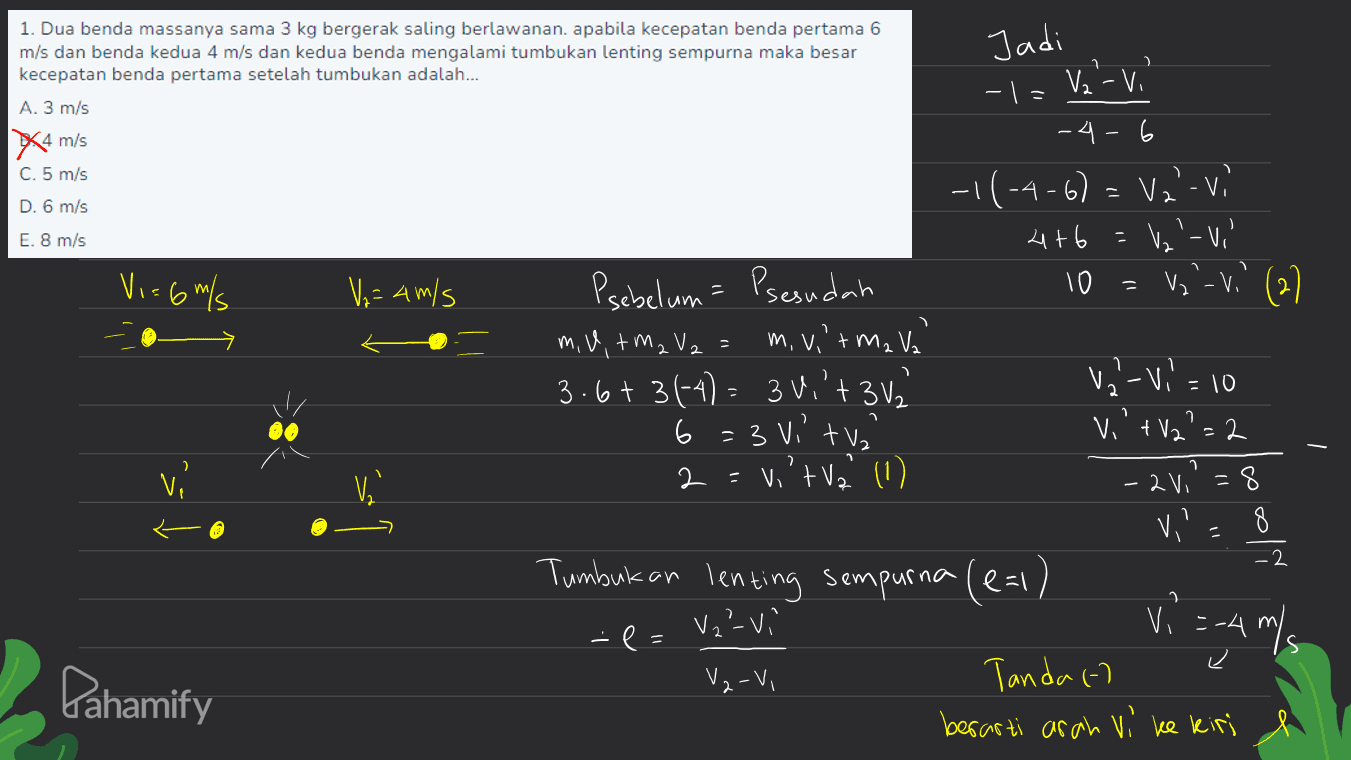 1. Dua benda massanya sama 3 kg bergerak saling berlawanan. apabila kecepatan benda pertama 6
m/s dan benda kedua 4 m/s dan kedua benda mengalami tumbukan lenting sempurna maka besar
kecepatan benda pertama setelah tumbukan adalah...
A. 3 m/s
B. 4 m/s
C. 5 m/s
D. 6 m/s
E. 8 m/s
V₁ = 6 m/s
V₂ = 4 m/s
V₁'
V₂'
Psebelum = Psesudah
m₁V₁ + m₂V₂ = m₁V₁' + m₂V₂'
3.6 + 3(-4) = 3V₁' + 3V₂'
6 = 3V₁' + V₂'
2 = V₁' + V₂' (1)
Tumbukan lenting sempurna (e=1)
-e = (V₂' - V₁') / (V₂ - V₁)
Jadi
-1 = (V₂' - V₁') / (-4 - 6)
-1(-4-6) = V₂' - V₁'
4+6 = V₂' - V₁'
10 = V₂' - V₁' (2)
V₂' - V₁' = 10
V₁' + V₂' = 2 -
-2V₁' = 8
V₁' = 8 / -2
V₁' = -4 m/s
Tanda (-)
berarti arah V₁' ke kiri
Pahamify